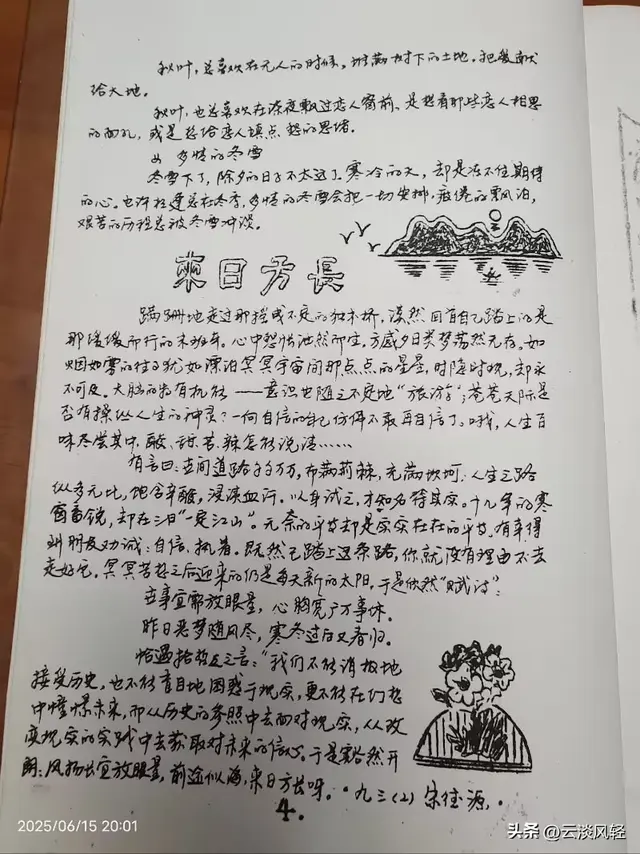 秋叶，总喜欢在无人的时候。堆满树下的土地。把爱献
给大地。
秋叶，也总喜欢在深夜飘过恋人窗前、是想看那些恋人相思
的面孔，或是想给恋人填点愁的思绪。
多情的冬雪
冬雪下了，除夕的日子不太远了。寒冷的天，却是冻不住期待
的心。也许相逢总在冬季，多情的冬雪会把一切安排，疲倦的飘泊，
艰苦的历程总被冬雪冲淡。
来日方長
蹒跚地走过那摇或不定的独木桥，漠然回首自己踏上的是
那缓缓而行的末班车。心中怨怅油然而生，方感夕日类梦荡然无存。如
烟如雾的往日犹如漂泊冥冥宇宙间那点点的星星，时隐时现，却永
不可及。大脑的所有机能——意识也随之不定地“旅游”；苍苍天际是
否有操纵人生的神灵？一向自信的我仿佛不敢再自信了。哦，人生百
味尽尝其中，酸、甜、苦、辣怎能说清……
有言曰：世间道路千千万，布满荆棘，充满坎坷；人生之路
纵多元比，饱含辛酸，浸满血汗。以身试之，才知名符其实。十几年的寒
窗蓄锐，却在三日“一定江山”。无奈的平方却是实实在在的平方。有幸得
到朋友劝诫：自信、执着。既然已踏上这条路，你就没有理由不去
走好它。冥冥苦想之后迎来的仍是每天新的太阳，于是欣然“赋诗”：
世事宜需放眼量，心胸宽广万事休。
昨日恶梦随风尽，寒冬过后又春归。
恰遇哲之言：“我们不能消极地
接受历史，也不能盲目地困惑于现实，更不能在幻想
中憧憬未来，而从历史的参照中去面对现实，从改
变现实的实践中去获取对未来的信心。于是豁然开
朗：风物长宜放眼量，前途似海，来日方长呀。
九三(2) 宋佳源
4.
2025/06/15 20:01
头条@云淡风轻